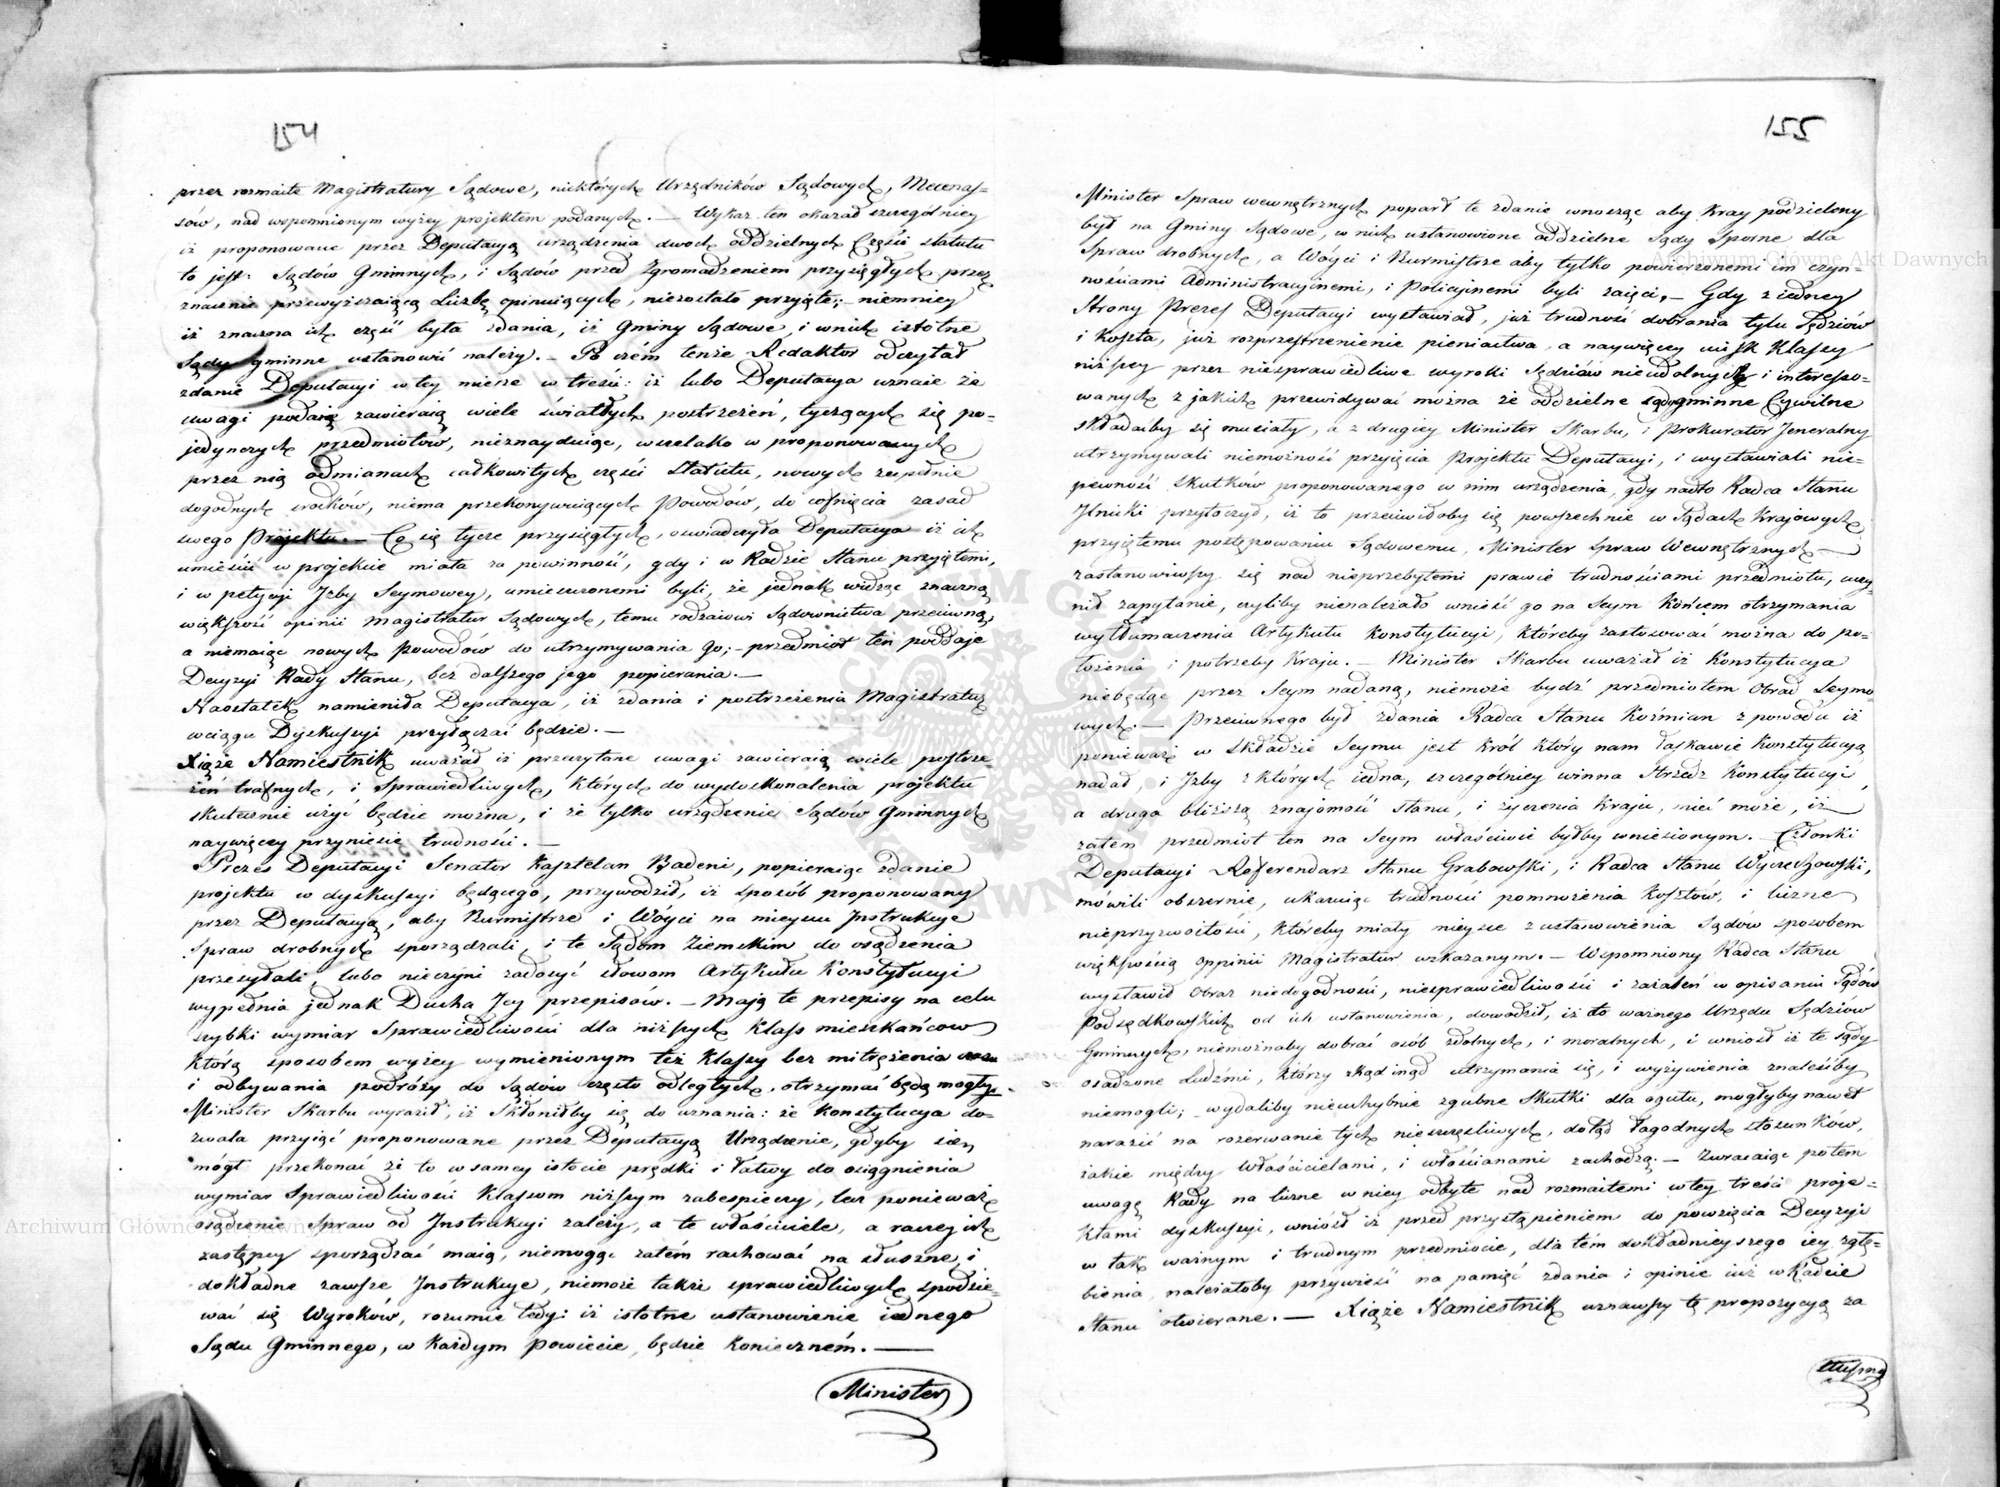 154
przez rozmaite Magistratury Sądowe, niektórych Urzędników Sądowych, Mecenas-
sów, nad wspomnionym wyżey projektem podanych. — Wykaz ten okazał szczególniey
iż proponowane przez Deputacyą urządzenia dwóch oddzielnych Części statutu
to jest: Sądów Gminnych, i Sądów przed Zgromadzeniem przysięgłych przez
znacznie przewyższaiącą Liczbę opiniuiących, niezostało przyięte; niemniey
iż znaczna ich część była zdania, iż Gminy Sądowe, i w nich istotne
Sądy gminne ustanowić należy. — Po czém tenże Redaktor odczytał
zdanie Deputacyi w tey mierze w treści: iż lubo Deputacya uznaie że
uwagi podaią zawieraią wiele światłych postrzeżeń, tyczących się po-
jedynczych przedmiotów, nieznayduiąc, wszelako w proponowanych
przez nią odmianach całkowitych części Statutu, nowych zupełnie
dogodnych srodków, niema przekonywaiących Powodów, do cofnięcia zasad
swego Projektu. — Co się tycze przysięgłych, oswiadczyła Deputacya iż ich
umieścić w projekcie miała za powinność, gdy i w Radzie Stanu przyiętemi,
i w petycyi Izby Seymowey, umieszczonemi byli, że jednak widząc znaczną
większość opinii Magistratur Sądowych, temu rodzaiowi Sądownictwa przeciwną,
a niemaiąc nowych Powodów do utrzymywania go; — przedmiot ten poddaje
Decyzyi Rady Stanu, bez dalszego jego popierania. —
Naostatek namieniła Deputacya, iż zdania i postrzeżenia Magistratur
w ciągu Dyskussyi przyłączać będzie. —
Xiąże Namiestnik uważał iż przeczytane uwagi zawieraią wiele postrze
żeń trafnych, i Sprawiedliwych, których do wydoskonalenia projektu
skutecznie użyć będzie można, i że tylko urządzenie Sądów Gminnych
naywięcey przyniesie trudności. —
Prezes Deputacyi Senator Kasztelan Badeni, popieraiąc zdanie
projektu w dyskussyi będącego, przywodził, iż sposób proponowany
przez Deputacyą, aby Burmistrze i Wóyci na mieyscu Instrukcye
Spraw drobnych sporządzali, i te Sądom Ziemskim do osądzenia
przesyłali, lubo nieczyni zadosyć słowom Artykułu Konstytucyi
wypełnia jednak Ducha Jey przepisów. — Mają te przepisy na celu
szybki wymiar Sprawiedliwości dla niższych Klass mieszkańcow
którą sposobem wyżey wymienionym też Klassy bez mitrężenia czasu
i odbywania podróży do Sądów często odległych, otrzymać będą mogły.
Minister Skarbu wyraził, iż Skłoniłby się do uznania: że Konstytucya do-
zwala przyiąć proponowane przez Deputacyą Urządzenie, gdyby się
mógł przekonać że to w samey istocie prędki i łatwy do osiągnienia
wymiar Sprawiedliwości Klassom niższym zabespieczy, lecz ponieważ
osądzenie Spraw od Instrukcyi zależy, a te właściciele, a raczey ich
zastępcy sporządzać maią, niemogąc zatém rachować na słuszne, i
dokładne zawsze Instrukcye, niemoże także sprawiedliwych spodzie-
wać się Wyroków, rozumie tedy: iż istotne ustanowienie iednego
Sądu Gminnego, w każdym Powiecie, będzie koniecznem. —
Minister
155
Minister Spraw wewnętrznych poparł te zdanie wnosząc aby Kray podzielony
był na Gminy Sądowe, w nich ustanowione oddzielne Sądy Sporne dla
Spraw drobnych, a Wóyci i Burmistrze aby tylko powierzonemi im czyn-
nościami Administracyinemi, i Policyinemi byli zaięci. — Gdy z iedney
Strony Prezes Deputacyi wystawiał, już trudność dobrania tylu Sędziów
i koszta, już rozprzestrzenienie pieniactwa, a naywięcey ucisk Klassy
niższey przez niesprawiedliwe wyroki Sędziów nieudolnych i interesso-
wanych z jakich przewidywać można że oddzielne sądy gminne Cywilne
składaćby się musiały, a z drugiey Minister Skarbu, i Prokurator Jeneralny
utrzymywali niemożność przyięcia Projektu Deputacyi, i wystawiali nie-
pewność Skutków proponowanego w nim urządzenia, gdy nadto Radca Stanu
Ilnicki przytoczył, iż to przeciwiłoby się powszechnie w Sądach Krajowych
przyiętemu postępowaniu Sądowemu, Minister Spraw Wewnętrznych —
zastanowiwszy się nad nieprzebytemi prawie trudnościami przedmiotu, uczy-
nił zapytanie, czyliby nienależało wnieść go na Seym Końcem otrzymania
wytłumaczenia Artykułu Konstytucyi, któreby zastosować można do po-
łożenia i potrzeby Kraju. — Minister Skarbu uważał iż Konstytucya
niebędąc przez Seym nadaną, niemoże bydź przedmiotem Obrad Seymo
wych. — Przeciwnego był zdania Radca Stanu Koźmian z powodu iż
ponieważ w składzie Seymu jest Król który nam łaskawie Konstytucyą
nadał, i Izby z których iedna, szczególniey winna Strzedz Konstytucyi,
a druga bliższą znajomość stanu, i życzenia Kraju, mieć może, iż
zatem przedmiot ten na Seym właściwie byłby wniesionym. — Członki
Deputacyi Referendarz Stanu Grabowski, i Radca Stanu Wyczechowski,
mówili obszernie, ukazuiąc trudności pomnożenia Kosztów, i liczne
nieprzyzwoitości, któreby miały mieysce z ustanowienia Sądów sposobem
większością oppinii Magistratur wskazanym. — Wspomniony Radca Stanu
wystawił Obraz niedogodności, niesprawiedliwości i zażaleń w opisaniu Sądów
Podsędkowskich od ich ustanowienia, dowodził, iż do ważnego Urzędu Sędziów
Gminnych, niemożnaby dobrać osób zdolnych, i moralnych, i wniósł iż te sądy
osadzone Ludźmi, którzy skądinąd utrzymania się, i wyżywienia znaleśćby
niemogli; wydaliby nieuchybnie zgubne Skutki dla ogułu, mogłyby nawet
narazić na rozerwanie tych nieszczęśliwych, dotąd łagodnych stosunków,
iakie między Właścicielami, i włościanami zachodzą. — Zwracaiąc potem
uwagę Rady na liczne w niey odbyte nad rozmaitemi w tey treści proje-
ktami dyskussyi, wniósł iż przed przystąpieniem do powzięcia Decyzyi
w tak ważnym i trudnym przedmiocie, dla tém dokładnieyszego iey zgłę-
bienia, należałoby przywieść na pamięć zdania i opinie iuż w Radzie
Stanu otwierane. — Xiąże Namiestnik uznawszy tę propozycyą za
Archiwum Główne Akt Dawnych